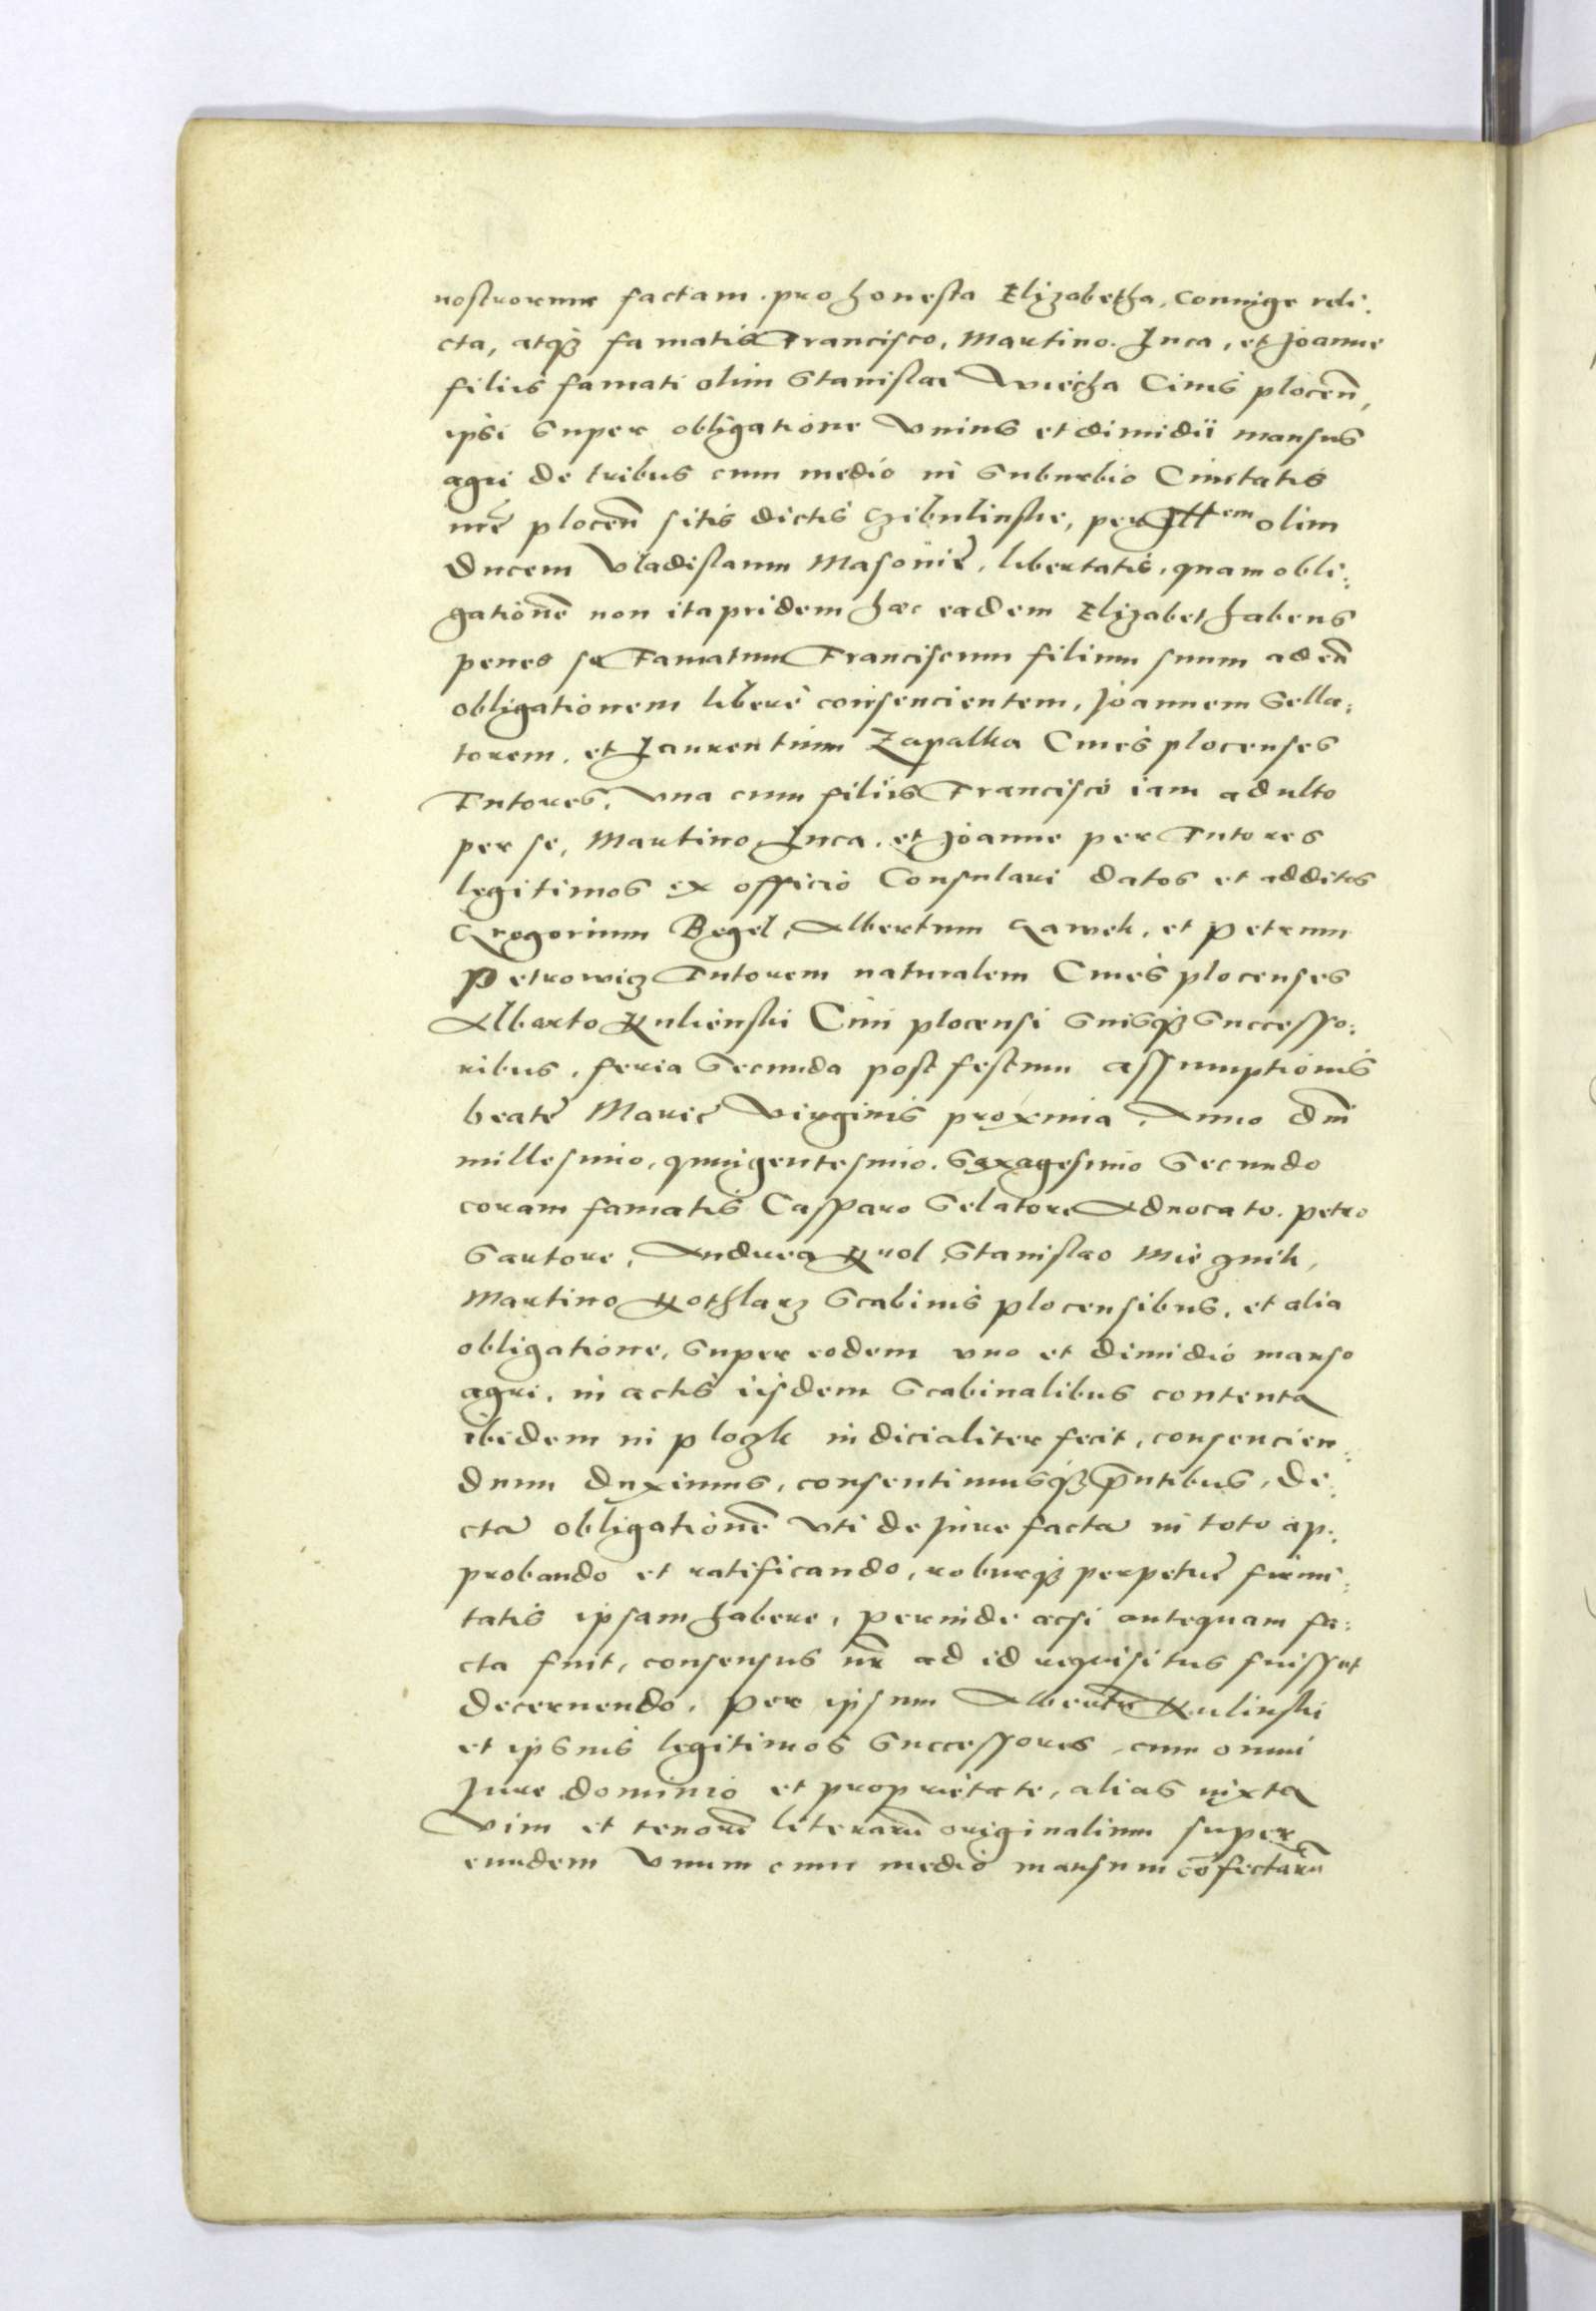 nostrorum factam. pro honesta Elizabetha, coniuge reli:
cta, atq₃ famatis Francisco, Martino. Luca, et Joanne
filiis famati olim Stanislai Wiecha Civis plocen̄,
ipsi super obligatione Vnius et dimidii mansus
agri de tribus cum medio in suburbio Civitatis
nr̄e plocen̄ sitis dictis Czibulinskie, per Ill^em olim
Ducem Vladislaum Masovię, libertatis, quam obli:
gationē non ita pridem hæc eadem Elizabet habens
penes se Famatum Franciscum filium suum ad eā
obligationem liberè consencientem, Joannem Sella:
torem, et Laurentium Zapalka Cives plocenses
Tutores, vna cum filiis Francisco iam adulto
per se, Martino, Luca, et Joanne per Tutores
legitimos ex officio Consulari datos et additos
Gregorium Begel, Albertum Gawek, et Petrum
Petrowicz Tutorem naturalem Cives plocenses
Alberto Kulienski Civi plocensi suisq₃ Successo:
ribus, feria Secunda post festum assumptionis
beatę Marię Virginis proxima, Anno dn̄i
millesimo, quingentesimo, Sexagesimo Secundo
coram famatis Casparo Selatore Advocato. petro
Sartore, Andrea Krol Stanislao Miecznik,
Martino Kothlarz Scabinis plocensibus, et alia
obligatione, super eodem vno et dimidio manso
agri, in actis iisdem Scabinalibus contenta
ibidem in plozk iudicialiter fecit, consencien:
dum duximus, consentimusq₃ p̄ntibus, di:
ctā obligationē vti de jure factā in toto ap:
probando et ratificando, roburq₃ perpetuę firmi:
tatis ipsam habere, perinde acsi antequam fa:
cta fuit, consensus nr̄ ad id requisitus fuisset
decernendo, per ipsum Albertū Kulinski
et ipsius legitimos Successores, cum omni
Jure dominio et proprietate, alias iuxta
vim et tenorē literarū originalium super
eundem Vnum cum medio mansum cōfectarū